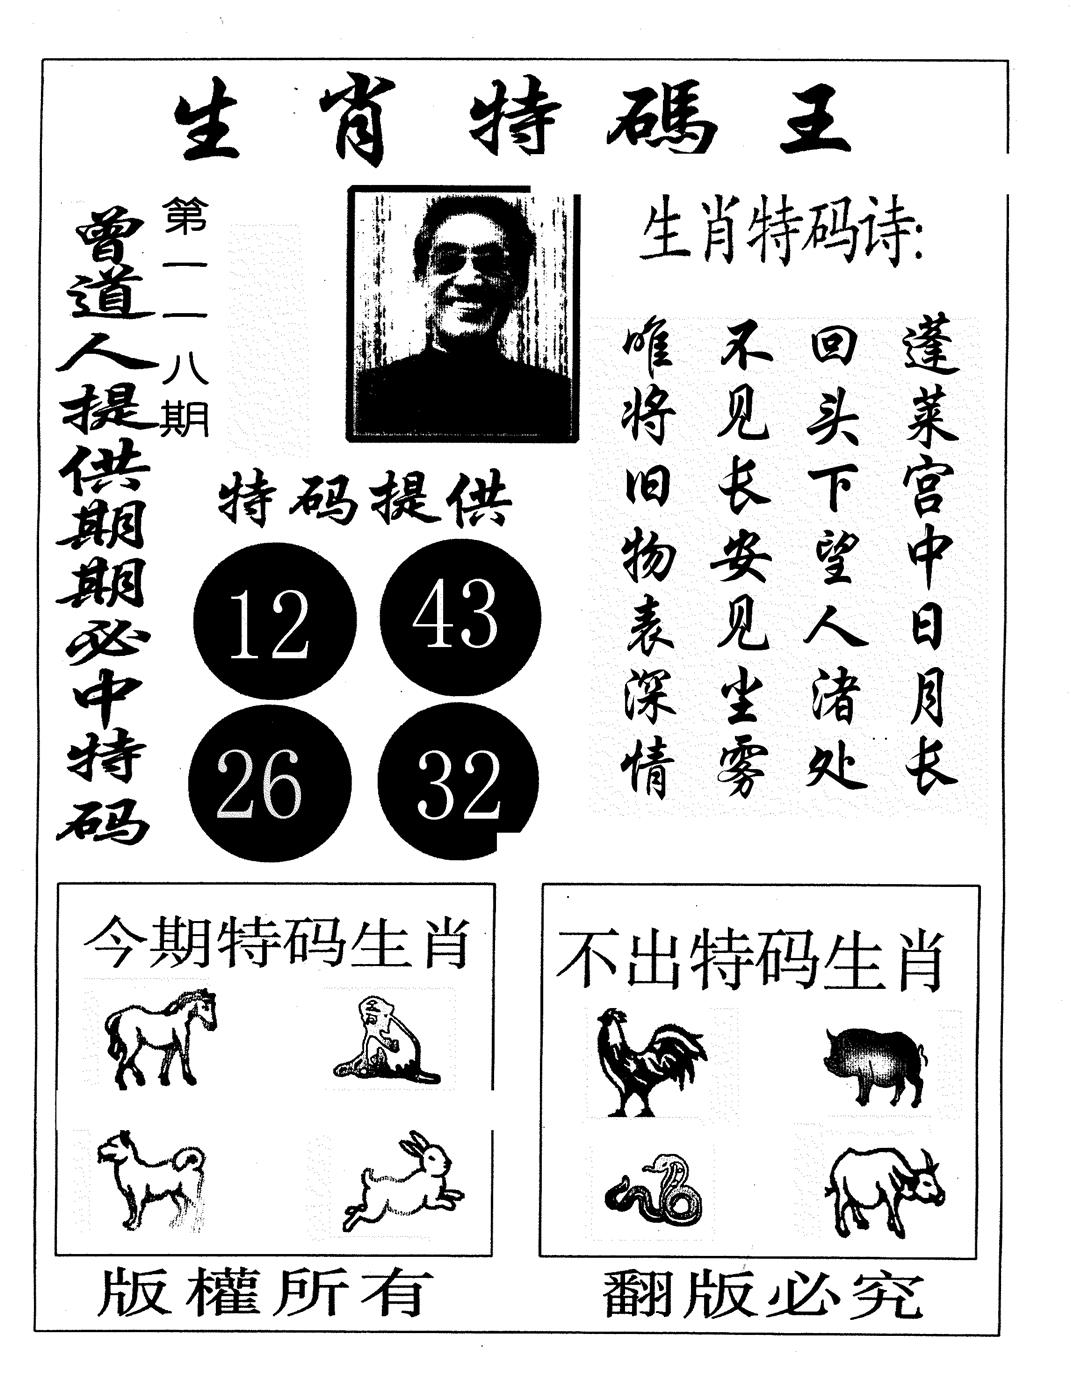 生肖特碼王
曾道人提供期期必中特码
第一一八期
生肖特码诗:
蓬莱宫中日月长
回头下望人渚处
不见长安见尘雾
唯将旧物表深情
特码提供
12
43
26
32
今期特码生肖
不出特码生肖
版權所有
翻版必究